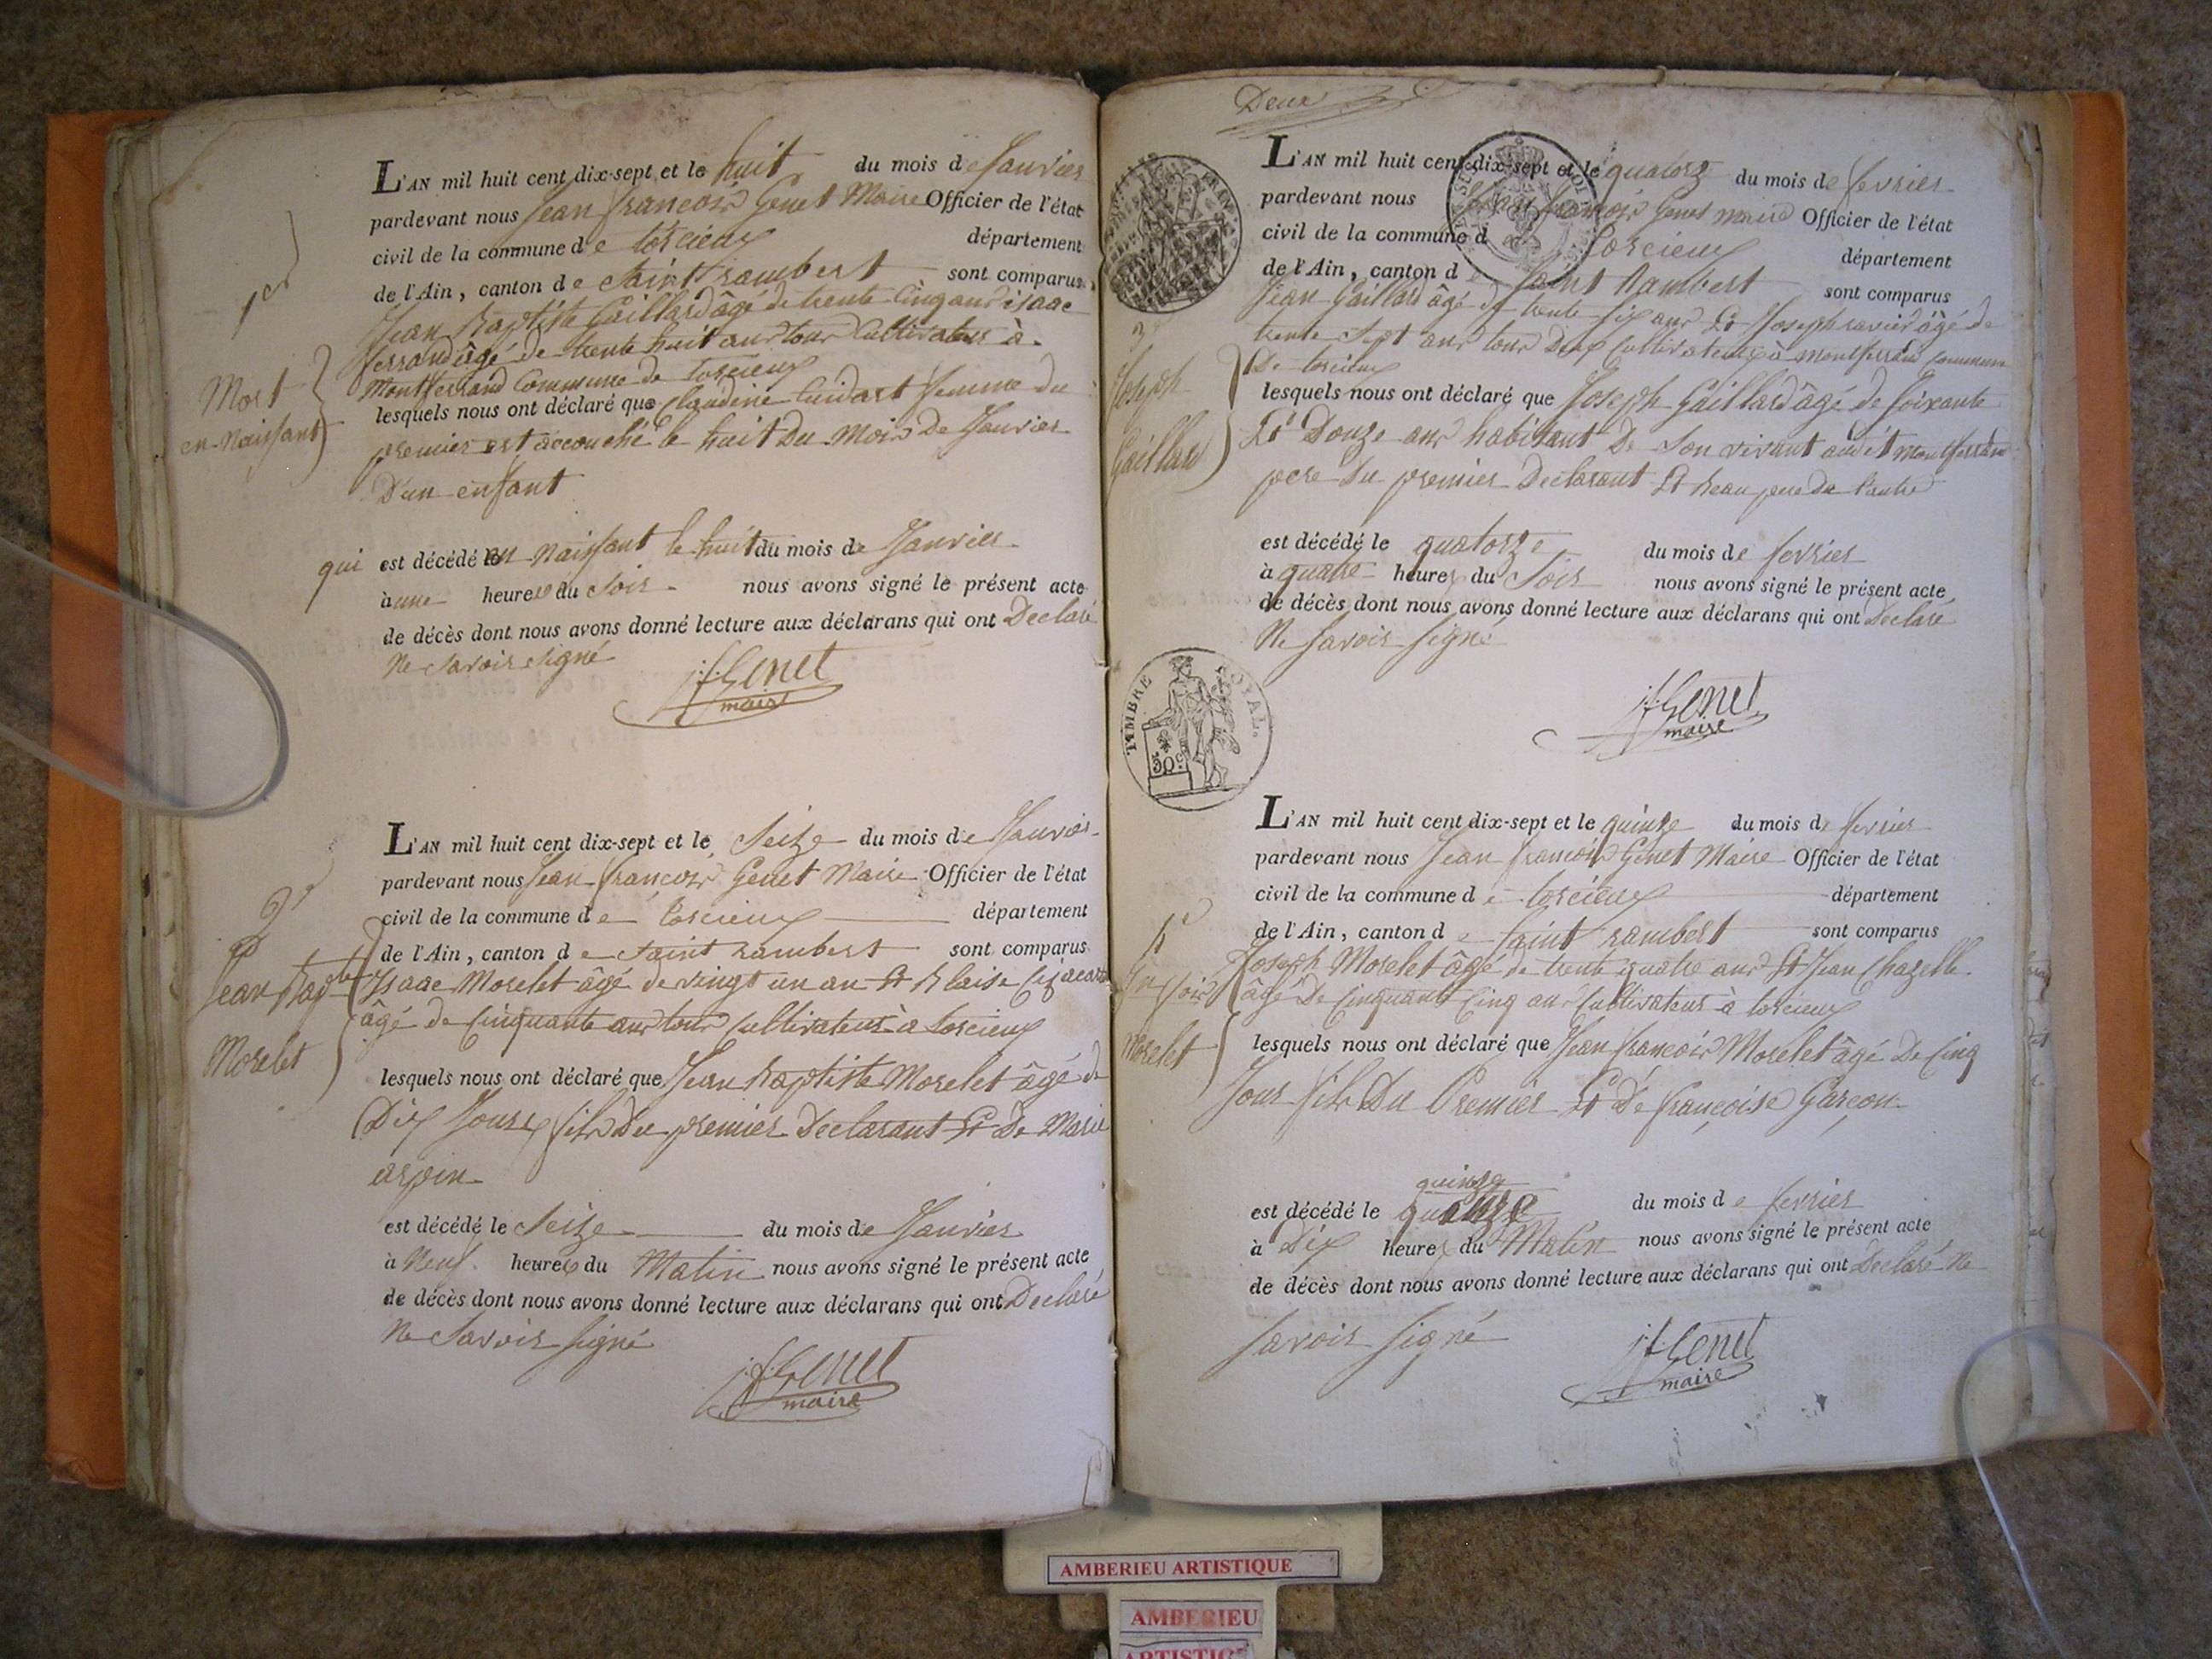 L'AN mil huit cent dix-sept et le huit du mois de Janvier
pardevant nous Jean françois Genet Maire Officier de l'état
civil de la commune de torcieux département
de l'Ain, canton de Saint rambert sont comparus
1er
Jean Baptiste Gaillard âgé de trente Cinq ans isaac
ferrand âgé de trente huit ans tous Cultivateurs à
Mort
en Naissant
Montferrand Commune de torcieux
lesquels nous ont déclaré que Claudine Cuidart femme du
premier est accouché le huit Du Mois De Janvier
D'un enfant
qui est décédé en Naissant le huit du mois de Janvier
à une heure du Soir nous avons signé le présent acte
de décès dont nous avons donné lecture aux déclarans qui ont Declaré
Ne Savoir Signé
jf Genet
maire
L'AN mil huit cent dix-sept et le Seize du mois de Janvier
pardevant nous Jean françois Genet Maire Officier de l'état
civil de la commune de torcieux département
2e
de l'Ain, canton de Saint rambert sont comparus
Jean Bapte
Morelet
Isaac Morelet âgé de vingt un an Et Blaise
âgé de Cinquante ans tous Cultivateurs à torcieux
lesquels nous ont déclaré que Jean Baptiste Morelet âgé de
Dix Jours fils Du premier Declarant Et De Marie
arpin
est décédé le Seize du mois de Janvier
à Neuf heures du Matin nous avons signé le présent acte
de décès dont nous avons donné lecture aux déclarans qui ont Declaré
Ne Savoir Signé
jf Genet
maire
Deux
L'AN mil huit cent dix-sept et le quatorze du mois de fevrier
pardevant nous Jean françois Genet maire Officier de l'état
civil de la commune de torcieux département
de l'Ain, canton de Saint Rambert sont comparus
Jean Gaillard âgé de trente six ans Et Joseph savier âgé de
3e
Joseph
Gaillard
trente Sept ans tous Deux Cultivateurs à montferrand commune
De torcieux
lesquels nous ont déclaré que Joseph Gaillard âgé de Soixante
Et Douze ans habitant De Son vivant audit montferrand
pere Du premier Declarant Et Beau pere De l'autre
est décédé le quatorze du mois de fevrier
à quatre heures du Soir nous avons signé le présent acte
de décès dont nous avons donné lecture aux déclarans qui ont Declaré
Ne Savoir Signé
jf Genet
maire
TIMBRE ROYAL.
50c
L'AN mil huit cent dix-sept et le quinze du mois de fevrier
pardevant nous Jean françois Genet Maire Officier de l'état
civil de la commune de torcieux département
de l'Ain, canton de Saint rambert sont comparus
Joseph Morelet âgé de trente quatre ans Et Jean Chazelle
Morelet
âgé De Cinquante Cinq ans Cultivateurs à torcieux
lesquels nous ont déclaré que Jean françois Morelet âgé De Cinq
Jour fils Du Premier Et De françoise Garçon
quinze
est décédé le du mois de fevrier
à Dix heures du Matin nous avons signé le présent acte
de décès dont nous avons donné lecture aux déclarans qui ont Declaré Ne
Savoir Signé
jf Genet
maire
AMBERIEU ARTISTIQUE
AMBERIEU
ARTISTIQUE